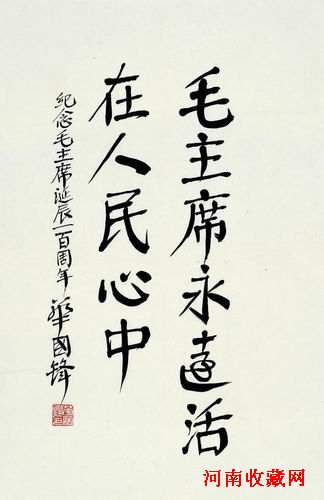 毛主席永遠活
在人民心中
纪念毛主席诞辰一百周年 華國鋒
河南收藏网